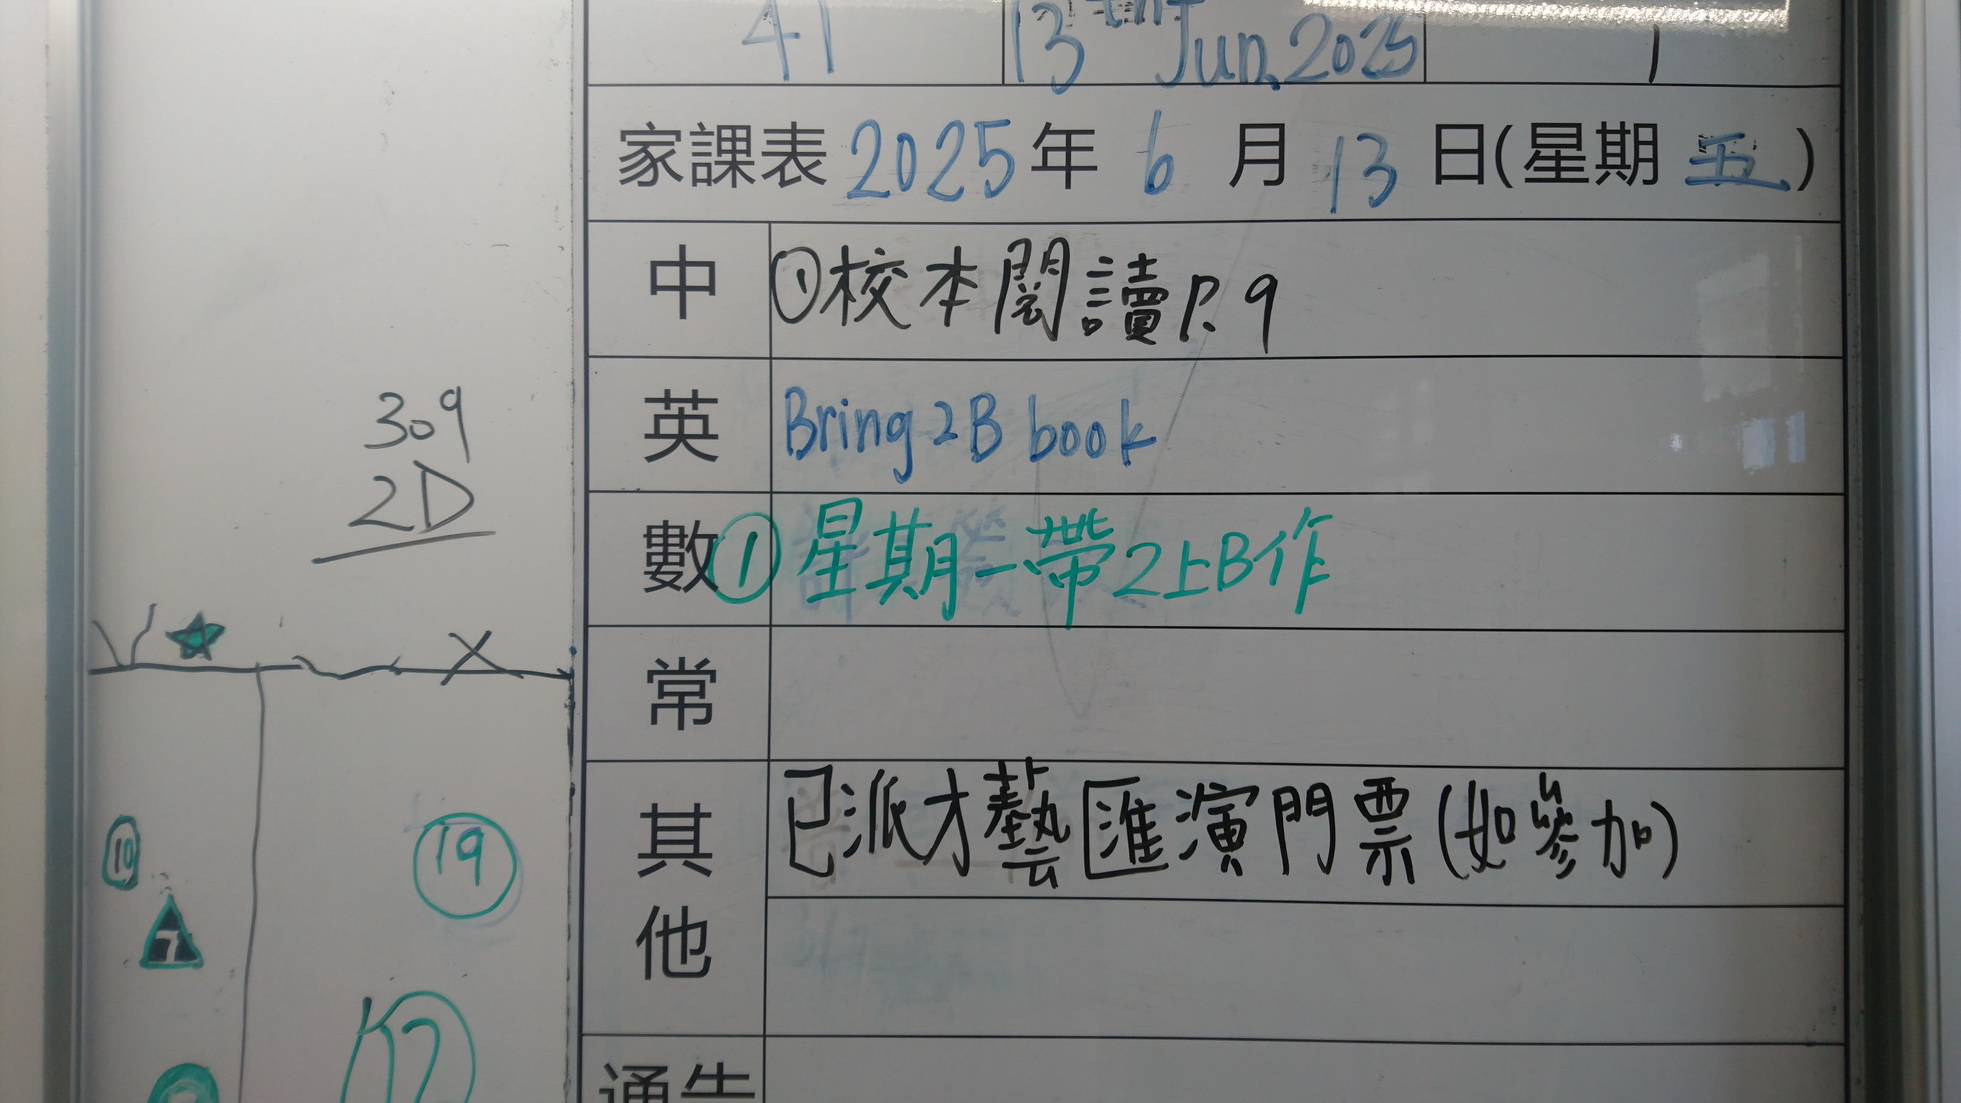 41 13th Jun, 2025 1
家課表 2025年 6 月 13 日(星期 五)
中 ①校本閱讀P.9
英 Bring 2B book
數 ①星期一帶2上B作
常
其他 已派才藝匯演門票(如參加)
通告
309
2D
10
7
19